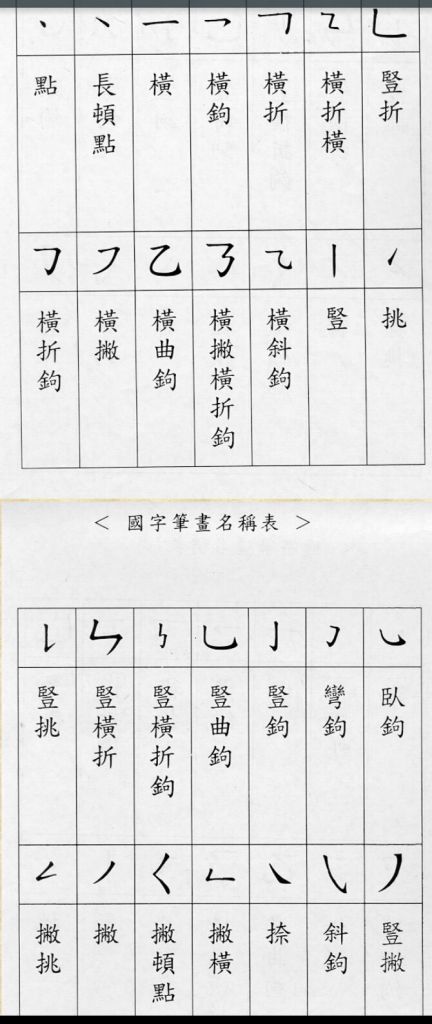 點
長頓點
橫
橫鉤
橫折
橫折橫
豎折
橫折鉤
橫撇
橫曲鉤
橫撇橫折鉤
橫斜鉤
豎
挑
< 國字筆畫名稱表 >
豎挑
豎橫折
豎橫折鉤
豎曲鉤
豎鉤
彎鉤
臥鉤
撇挑
撇
撇頓點
撇橫
捺
斜鉤
豎撇